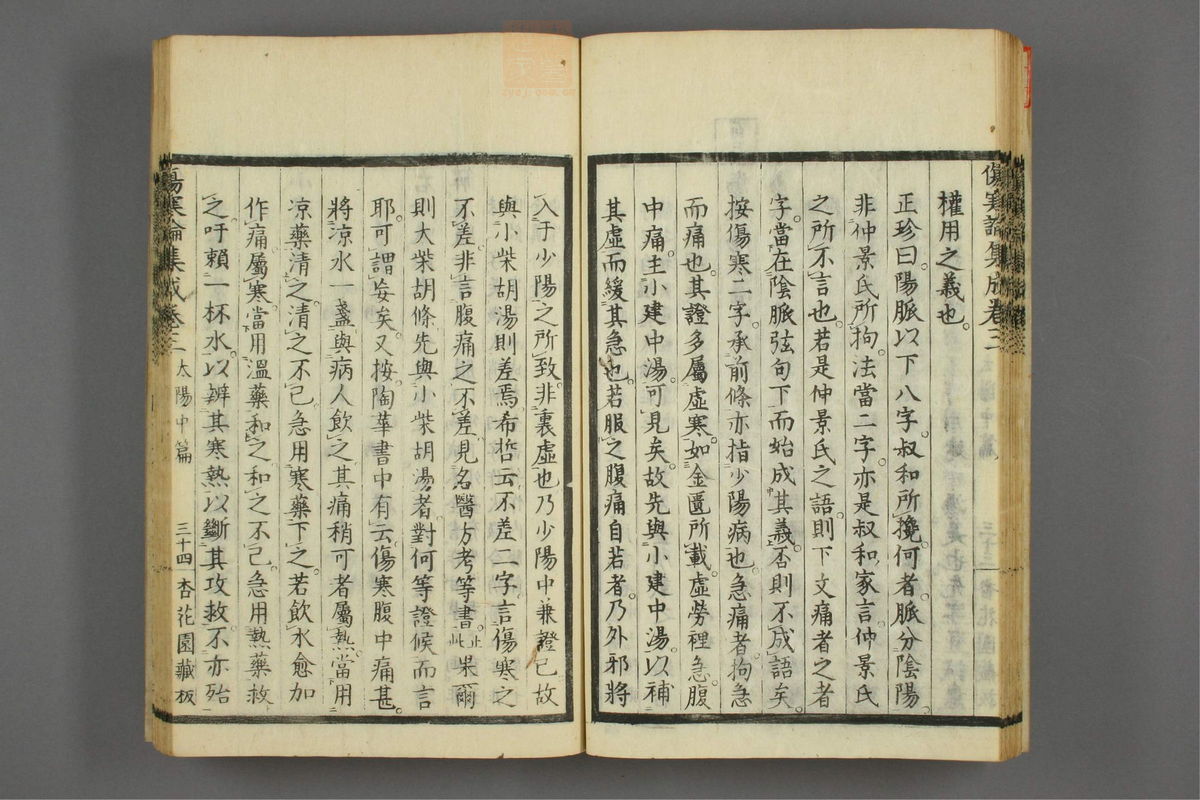 傷寒論集成卷三
權用之義也。
正珍曰陽脈以下八字叔和所攙何者脈分陰陽
非仲景氏所拘法當二字亦是叔和家言仲景氏
之所不言也。若是仲景氏之語則下文痛者之者
字。當在陰脈弦句下而始成其義。否則不成語矣。
按傷寒二字。承前條亦指少陽病也。急痛者拘急
而痛也。其證多屬虛寒。如金匱所載虛勞裡急腹
中痛。主小建中湯。可見矣。故先與小建中湯。以補
其虛而緩其急也。若服之腹痛自若者。乃外邪將
入于少陽之所致。非裏虛也乃少陽中兼證已故
與小柴胡湯則差焉。希哲云不差二字。言傷寒之
不差。非言腹痛之不差。見名醫方考等書。止此果爾
則大柴胡條。先與小柴胡湯者。對何等證候而言
耶。可謂妄矣。又按陶華書中有云傷寒腹中痛甚。
將凉水一盞與病人飲之。其痛稍可者屬熱。當用
凉藥清之。清之不已。急用寒藥下之。若飲水愈加
作痛屬寒。當用溫藥和之和之不已。急用熱藥救
之。吁賴一杯水。以辨其寒熱以斷其攻救。不亦殆
傷寒論集成卷三 太陽中篇 三十四 杏花園藏板